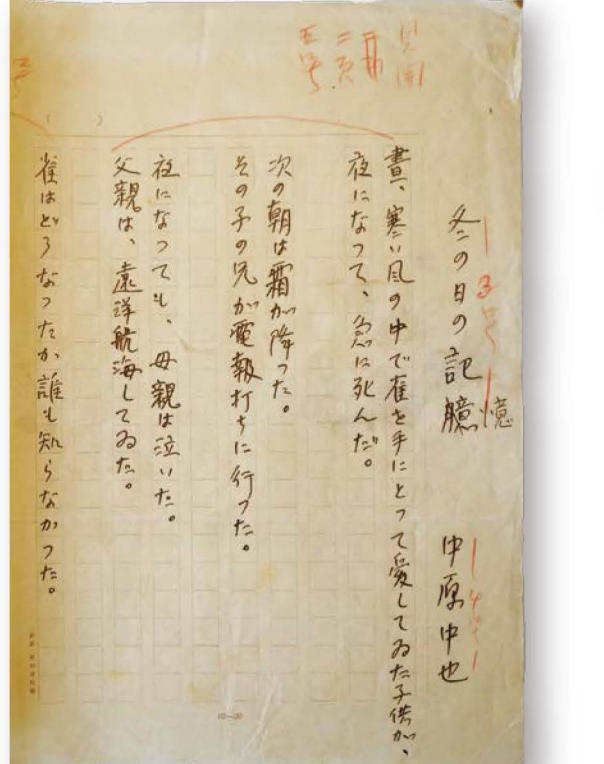 見開
二頁
五号
3号
冬の日の記臆
憶
中原中也
晝、寒い風の中で雀を手にとつて愛してゐた子供が、
夜になつて、急に死んだ。
次の朝は霜が降つた。
その子の兄が電報打ちに行つた。
夜になつても、母親は泣いた。
父親は、遠洋航海してゐた。
雀はどうなつたか誰も知らなかつた。
10—20